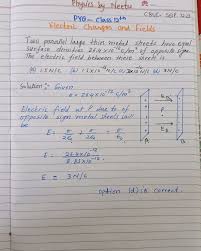 Physics by Neetu
CBSE- SQP 2023
PYQ - Class 12th
Electric Charges and Fields
Two parallel large thin metal sheets have equal
surface densities 26.4 × 10⁻¹² C/m² of opposite sign.
The electric field between these sheets is
(a) 1.5 N/C (b) 1.5 × 10⁻¹⁰ N/C (c) 3 × 10⁻¹⁰ N/C (d) 3 N/C
Solution: Given
σ = 26.4 × 10⁻¹² C/m²
Electric field at P due to of
opposite sign metal sheets will
be
E = σ/2ε₀ + σ/2ε₀ = σ/ε₀
E = 26.4 × 10⁻¹² / 8.85 × 10⁻¹²
E = 3 N/C
A B
option (d) is correct.